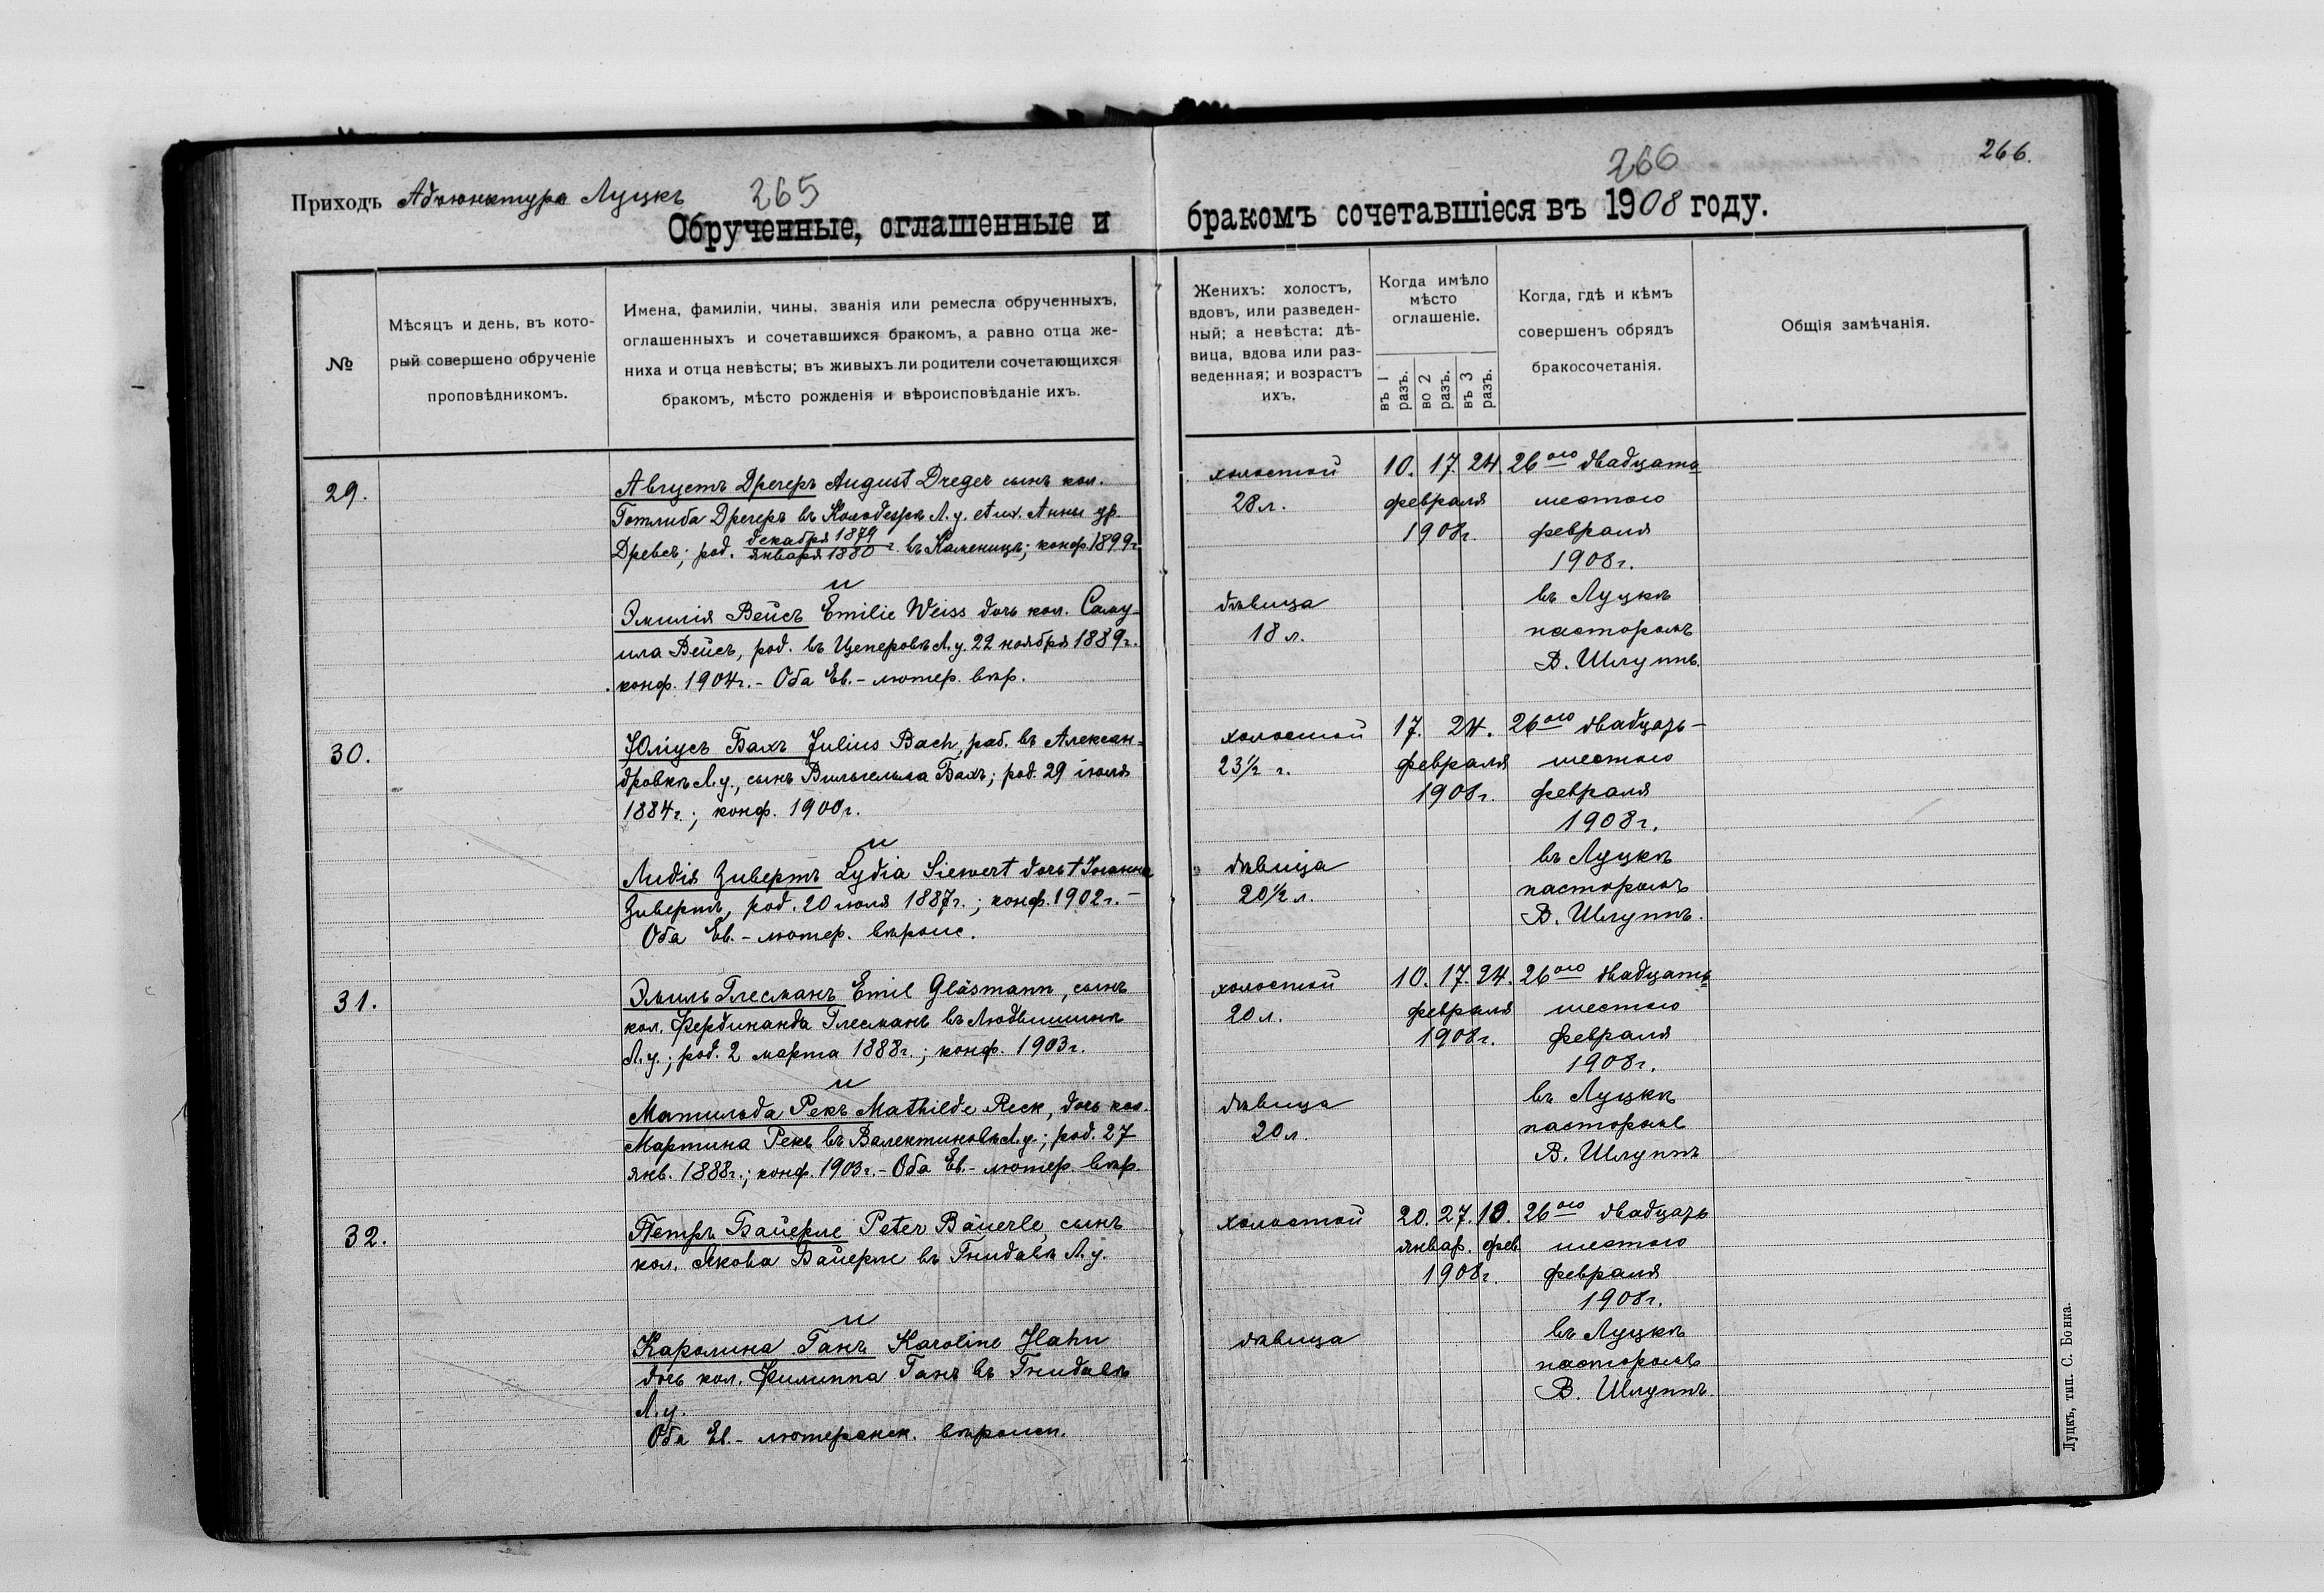 Приходъ Адъюнктура Луцкъ
265
266
266.
Обрученные, оглашенные и бракомъ сочетавшіеся въ 1908 году.
№
Мѣсяцъ и день, въ кото-
рый совершено обрученіе
проповѣдникомъ.
Имена, фамиліи, чины, званія или ремесла обрученныхъ,
оглашенныхъ и сочетавшихся бракомъ, а равно отца же-
ниха и отца невѣсты; въ живыхъ ли родители сочетающихся
бракомъ, мѣсто рожденія и вѣроисповѣданіе ихъ.
Женихъ: холостъ,
вдовъ, или разведен-
ный; а невѣста: дѣ-
вица, вдова или раз-
веденная; и возрастъ
ихъ.
Когда имѣло
мѣсто
оглашеніе.
въ 1
разъ.
во 2
разъ.
въ 3
разъ.
Когда, гдѣ и кѣмъ
совершенъ обрядъ
бракосочетанія.
Общія замѣчанія.
29.
Августъ Дрегеръ August Dreger сынъ кол.
Готлиба Дрегеръ въ Колодезѣ Л. у. Анны ур.
Древсъ; род. декабря 1879
января 1880 г. въ Каменицѣ; конф. 1899 г.
и
Эмилія Вейсъ Emilie Weiss дочь кол. Саму-
ила Вейсъ, род. въ Цеперовѣ Л. у. 22 ноября 1889 г.
конф. 1904 г. - Оба Ев. - лютер. вѣр.
холостой
28 л.
дѣвица
18 л.
10. 17. 24.
февраля
1908 г.
26ого двадцать
шестого
февраля
1908 г.
въ Луцкѣ
пасторомъ
В. Шлуппъ.
30.
Юліусъ Бахъ Julius Bach, раб. въ Алексан-
дровкѣ Л. у., сынъ Вильгельма Бахъ; род. 29 іюля
1884 г.; конф. 1900 г.
и
Лидія Зивертъ Lydia Siewert дочь † Іоанна
Зивертъ, род. 20 іюля 1887 г.; конф. 1902 г. -
Оба Ев. - лютер. вѣроис.
холостой
23½ г.
дѣвица
20½ л.
17. 24.
февраля
1908 г.
26ого двадцать-
шестого
февраля
1908 г.
въ Луцкѣ
пасторомъ
В. Шлуппъ.
31.
Эмиль Глесманъ Emil Gläsmann, сынъ
кол. Фердинанда Глесманъ въ Людвишинѣ
Л. у.; род. 2 марта 1888 г.; конф. 1903 г.
и
Матильда Рекъ Mathilde Reck, дочь кол.
Мартина Рекъ въ Валентиновѣ Л. у.; род. 27
янв. 1888 г.; конф. 1903 г. - Оба Ев. - лютер. вѣр.
холостой
20 л.
дѣвица
20 л.
10. 17. 24.
февраля
1908 г.
26ого двадцать
шестого
февраля
1908 г.
въ Луцкѣ
пасторомъ
В. Шлуппъ
32.
Петръ Байерле Peter Bäuerle, сынъ
кол. Якова Байерле въ Гнидавѣ Л. у.
и
Каролина Ганъ Karoline Hahn
дочь кол. Филиппа Ганъ въ Гнидавѣ
Л. у.
Оба Ев. - лютеранск. вѣроисп.
холостой
дѣвица
20. 27. 10.
январ. фев.
1908 г.
26ого двадцать
шестого
февраля
1908 г.
въ Луцкѣ
пасторомъ
В. Шлуппъ.
Луцкъ, тип. С. Бонка.